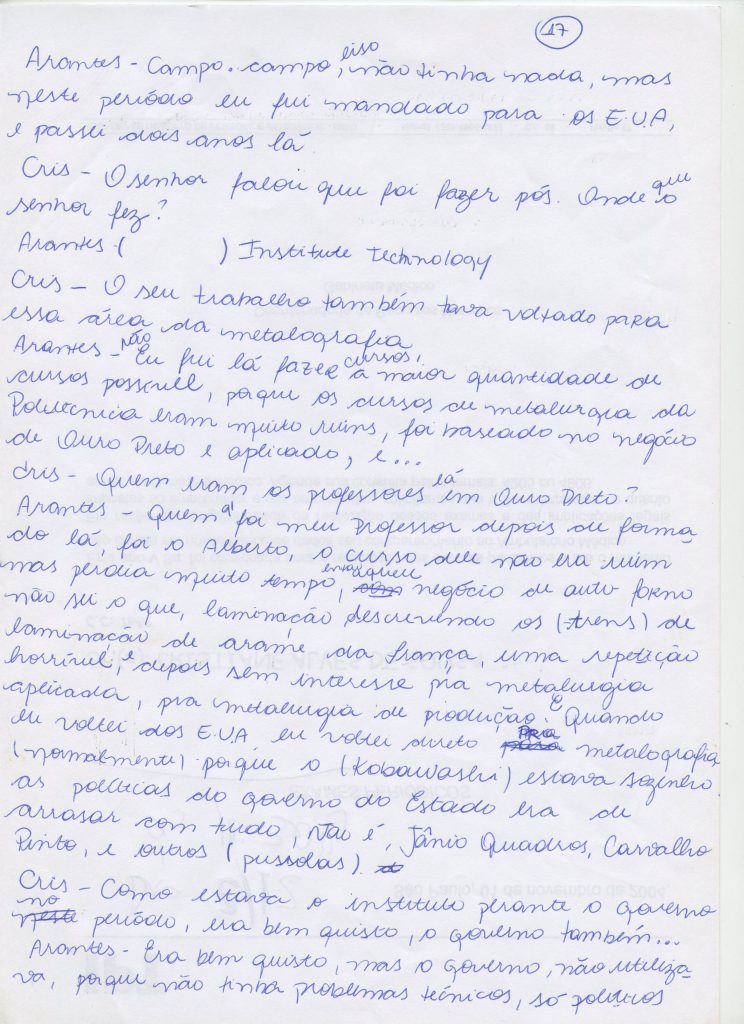 17
Arantes - Campo. campo, eiso não tinha nada, mas
neste periódo eu fui mandado para os E.U.A,
e passei dois anos lá
Cris - O senhor falou que foi fazer pós. Onde que o
senhor fez?
Arantes - (      ) Institute Technology
Cris - O seu trabalho também tava voltado para
essa área da metalografia
Arantes - não Eu fui lá fazer cursos, a maior quantidade de
cursos possivell, porque os cursos de metalurgia da
Politecnica eram muito ruins, foi baseado no negócio
de Ouro Preto e aplicado, e...
Cris - Quem eram os professores lá em Ouro Preto?
Arantes - Quem foi meu Professor depois de forma
do lá, foi o Alberto, o curso dele não era ruim
mas perdia muito tempo, negócio de auto forno
não sei o que, laminação descrevendo os (trens) de
laminação de arame da frança, uma repetição
horrível, e depois sem interesse pra metalurgia
aplicada, pra metalurgia de produção. E Quando
eu voltei dos E.U.A eu voltei direto pra metalografia
(normalmente) porque o (Kobawashi) estava sozinho
as políticas do governo do Estado era de
arrasar com tudo, Não é, Jânio Quadros, Carvalho
Pinto, e outros (pussolas).
Cris - Como estava o instituto perante o governo
no periódo, era bem quisto, o governo também...
Arantes - Era bem quisto, mas o governo, não utiliza
va, porque não tinha problemas técnicos, só políticos